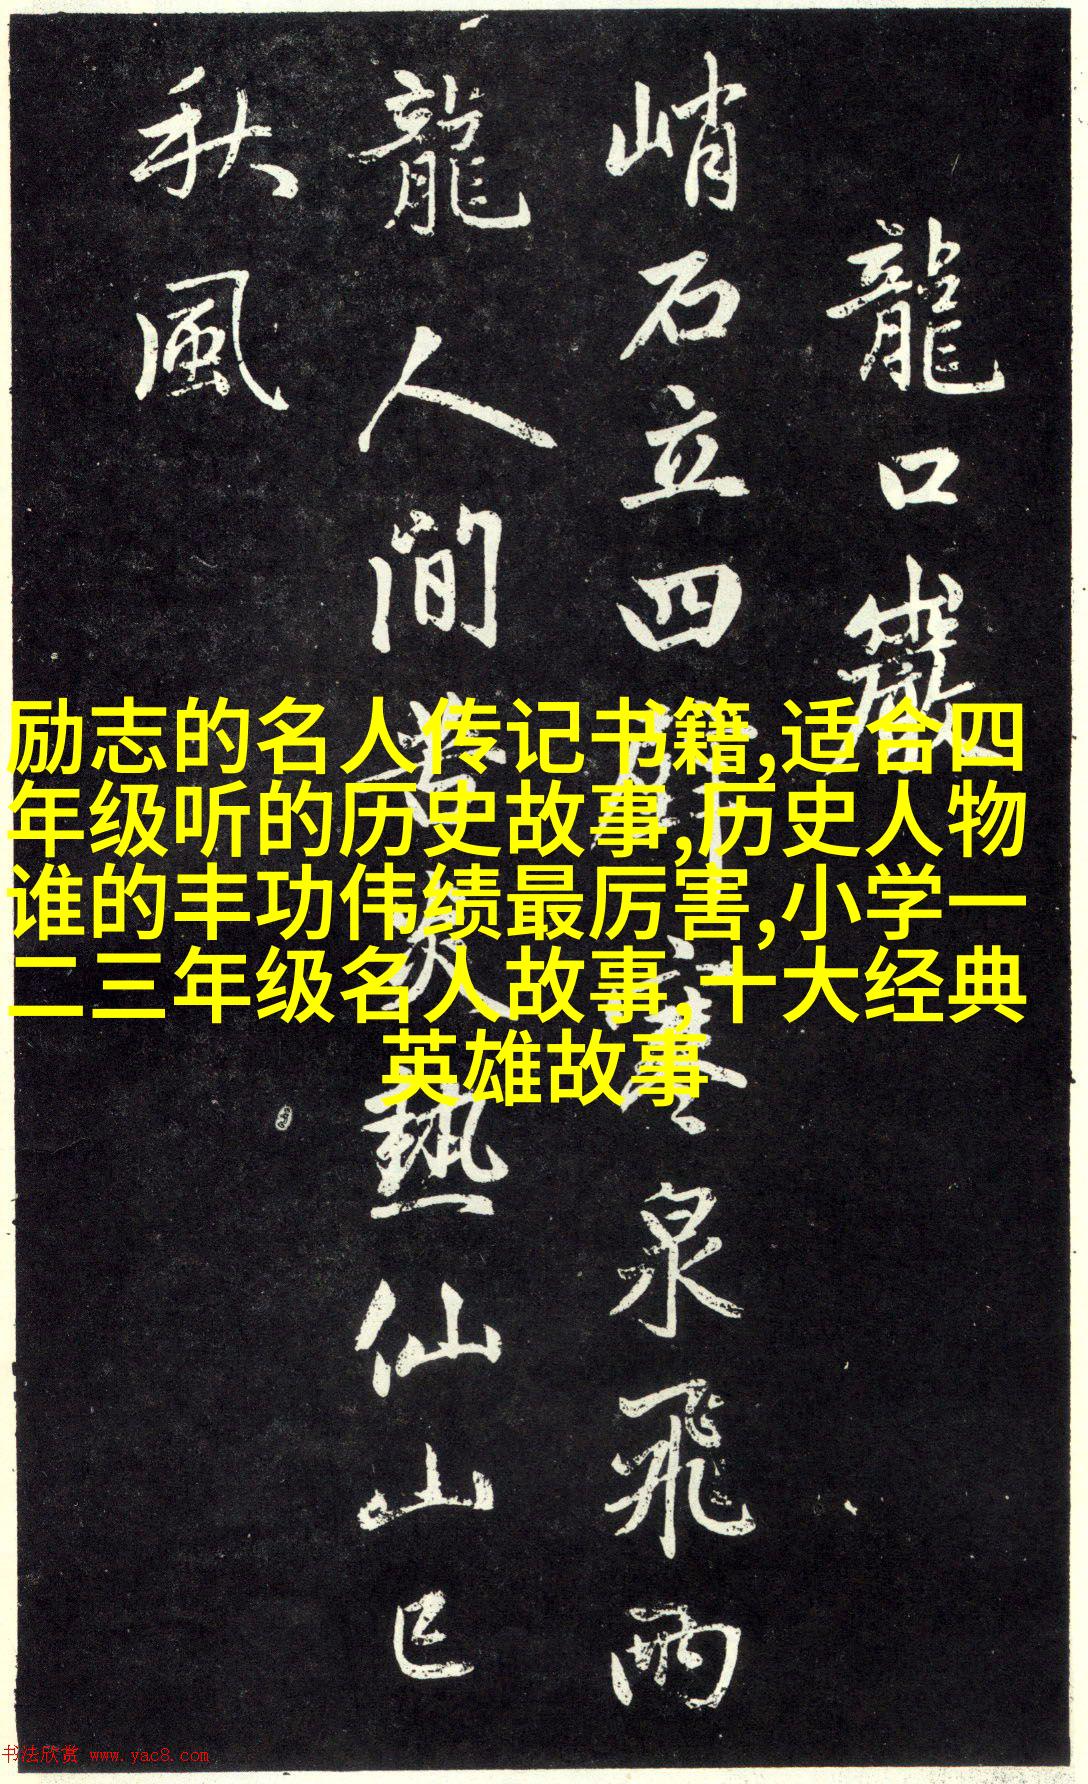 龍口巖
峭石立四泉飛兩
龍人間苦炎熱仙山已
秋風
励志的名人传记书籍,适合四
年级听的历史故事,历史人物
谁的丰功伟绩最厉害,小学一
二三年级名人故事,十大经典
英雄故事
书法欣赏 www.yac8.com